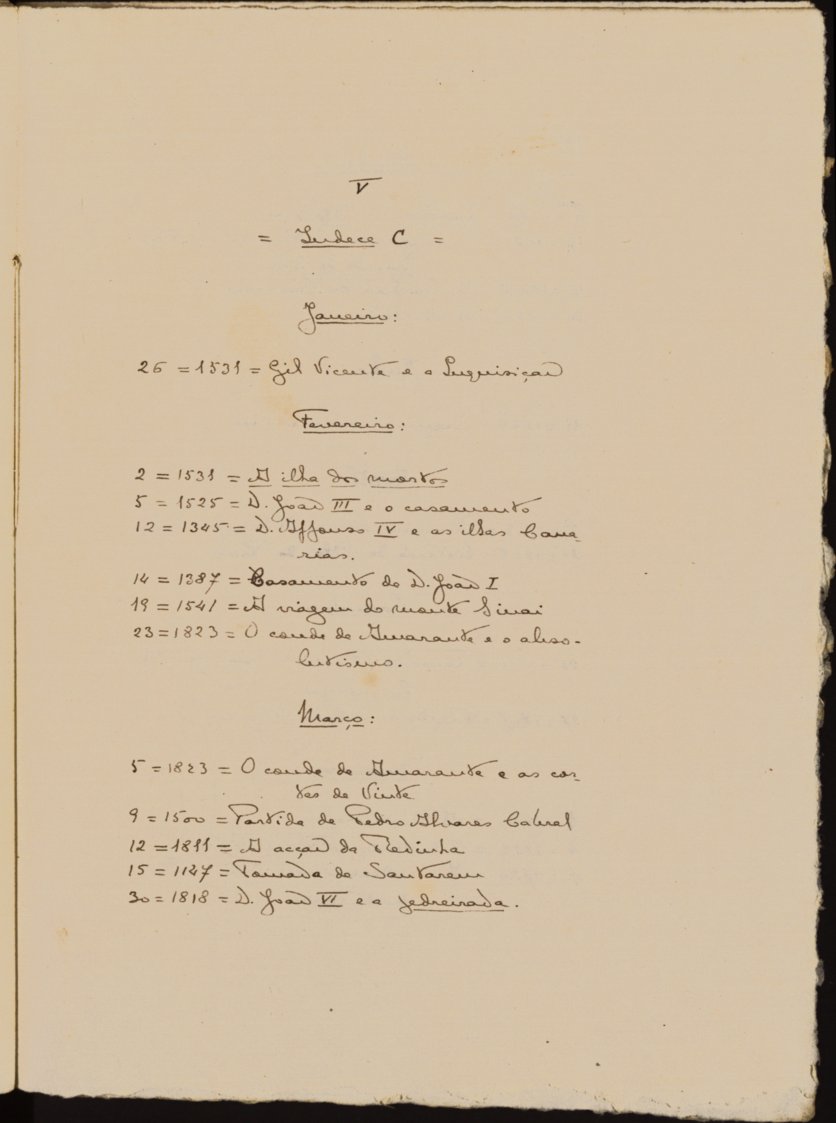 V
= Indece C =
Janeiro:
26 = 1531 = Gil Vicente e a Inquisição
Fevereiro:
2 = 1531 = A ilha dos mortos
5 = 1525 = D. João III e o casamento
12 = 1345 = D. Affonso IV e as ilhas Cana-
rias.
14 = 1387 = Casamento de D. João I
19 = 1541 = A viagem do monte Sinai
23 = 1823 = O conde de Amarante e o abso-
lutismo.
Março:
5 = 1823 = O conde de Amarante e as cor-
tes de Vinte
9 = 1500 = Partida de Pedro Alvares Cabral
12 = 1811 = A acção da Redinha
15 = 1147 = Tomada de Santarem
30 = 1818 = D. João VI e a pedreirada.